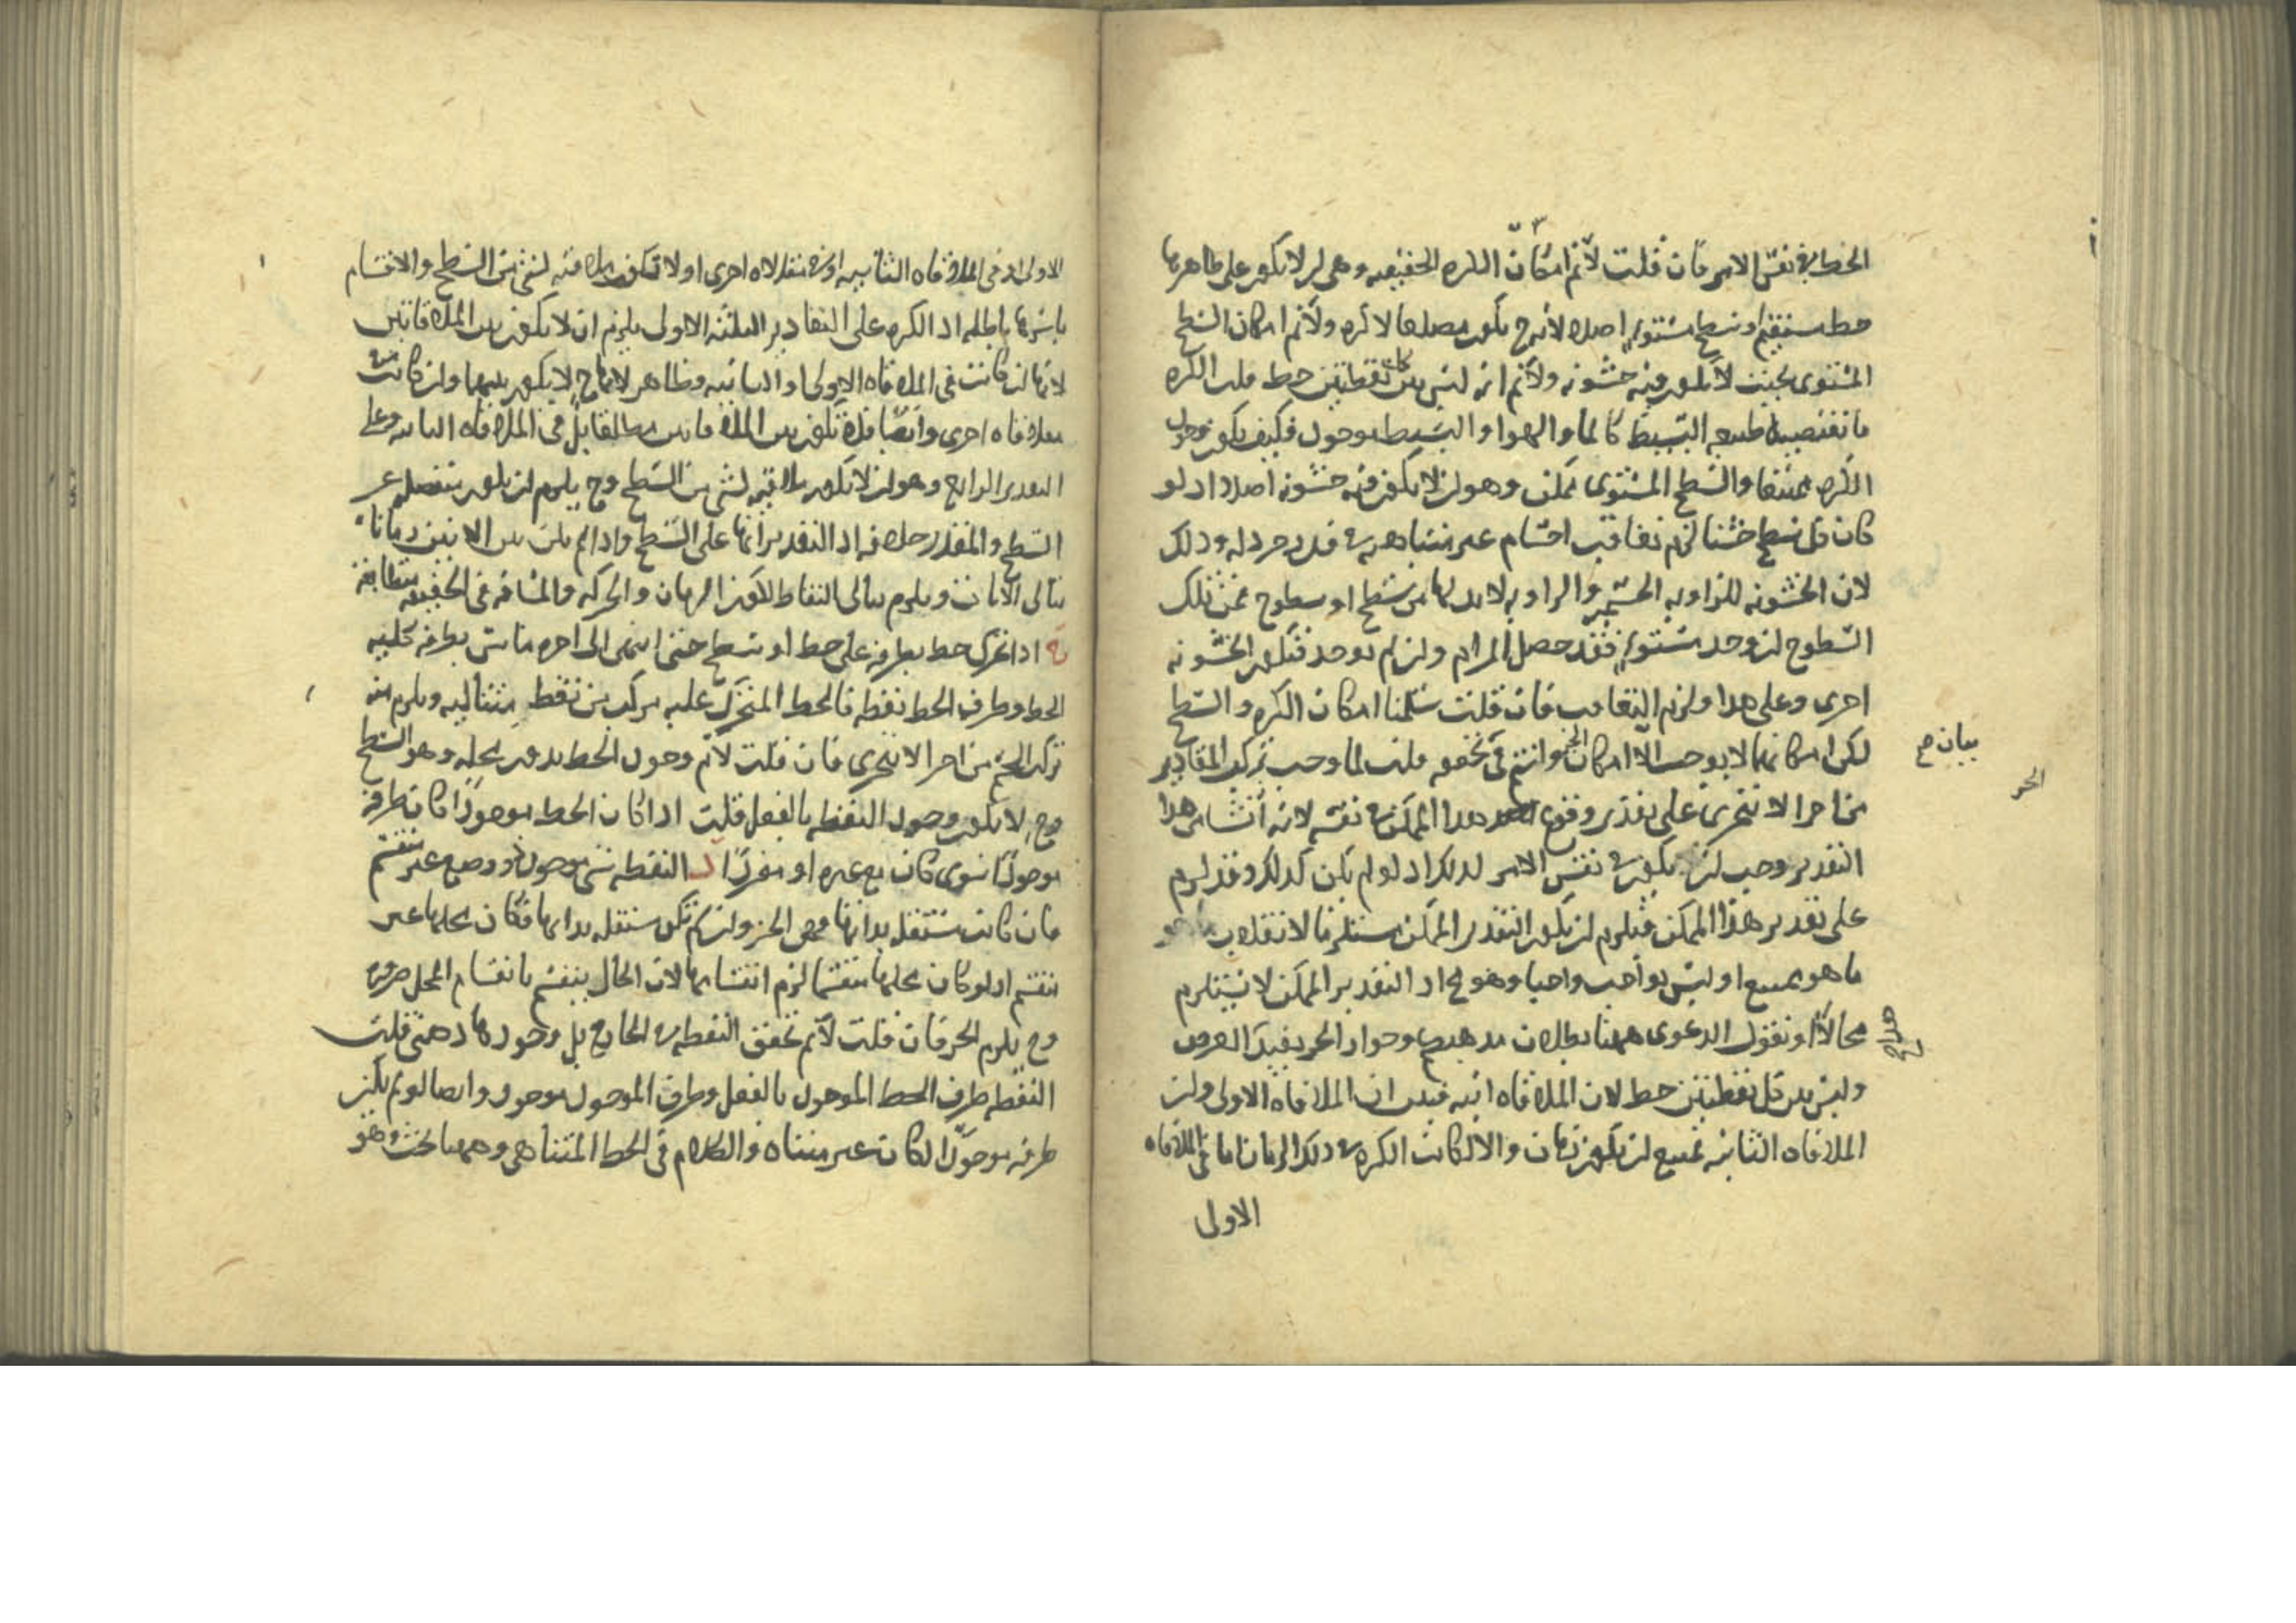 الخط في نفس الامر فان قلت لانم امكان الكره الحقيقيه وهي ان لا يكون على ظاهرها
خط مستقيم او سطح مستوٍ اصلا لانه ح يكون مضلعا لا كره ولانم امكان السطح
المستوى بحيث لا يكون فيه خشونه ولانم انه ليس بين كل نقطتين خط قلت الكره
ما تقتضيه طبيعه البسيط كالما والهوا والبسيط موجود فكيف يكون وجود
الكره ممتنعا والسطح المستوى ممكن وهو ان لا يكون فيه خشونه اصلا اذ لو
كان كل سطح خشنا لزم تعاقب اجسام غير متناهيه في قدر خردله وذلك
لان الخشونه للزاويه الجسم والزاويه لا بد لها من سطح او سطوح فمن تلك
السطوح ان وجد مستوٍ فقد حصل المرام وان لم يوجد فتكون الخشونه
اخرى وعلى هذا ولزم التعاقب فان قلت سلمنا امكان الكره والسطح
لكن امكانهما لا يوجب الا امكان الجزء وانتم في تحققه قلت لما وجب تركب المقادير
من اجزا لا تتجزى على تقدير وقوع هذا الممكن في نفسه لانه انشا من هذا
التقدير وجب ان يكون في نفس الامر لذلك اذ لو لم يكن كذلك وقد لزم
على تقدير هذا الممكن فيلزم ان يكون التقدير الممكن مستلزما لانقلاب
ما هو ممتنع او ليس بواجب واجبا وهو مح اذ التقدير الممكن لا يستلزم
محالا او نقول الدعوى ههنا بطلان مذهبهم وجواز الجزء يفيد الغرض
وليس بين كل نقطتين خط لان الملاقاه انيه فبين ان الملاقاه الاولى وان
الملاقاه الثانيه يمتنع ان يكون زمان والا لكانت الكره في ذلك الزمان اما في الملاقاه
الاولى
بيان م
الجزء
الاولى او في الملاقاه الثانيه او في ملاقاه اخرى او لا تكون ملاقيه لشي من السطح والاقسام
باسرها باطله اذ الكره على التقادير الثلثه الاولى يلزم ان لا يكون بين الملاقاتين
لانها ان كانت في الملاقاه الاولى او الثانيه وظاهر لانها ح لا يكون بينهما وان كانت في
ملاقاه اخرى وايضا فلا تكون بين الملاقاتين بل في الملاقاه الثانيه وعلى
التقدير الرابع وهو ان لا تكون ملاقيه لشي من السطح وح يلزم ان يكون منفصله عن
السطح والمقدر خلافه اذ التقدير انها على السطح واذا لم يكن بين الانين زمانا
تتالى الانات ويلزم تتالى النقاط لكون الزمان والحركه والمسافه في الحقيقه متطابقه
اذا تحرك خط بطرفه على خط او سطح حتى انتهى الى اخره ماس بطرفه كليه
الخط وطرف الخط نقطه فالخط المتحرك عليه مركب من نقط متتاليه ويلزم منه
تركب الجسم من اجزا لا تتجزى فان قلت لانم وجود الخط بدون محله وهو السطح
وح لا يكون وجود النقطه بالفعل قلت اذا كان الخط موجودا كان طرفه
موجودا سوى كان مع غيره او مفردا النقطه شي موجود ذو وضع غير منقسم
فان كانت مستقله بذاتها فهي الجزء وان لم تكن مستقله بذاتها فكان محلها غير
منقسم اذ لو كان محلها منقسما لزم انقسامها لان الحال ينقسم بانقسام المحل ضروره
وح يلزم الجزء فان قلت لانم تحقق النقطه في الخارج بل وجودها ذهنى قلت
النقطه طرف الخط الموجود بالفعل وطرف الموجود موجود وايضا لو لم يكن
طرفه موجودا لكان غير متناه والكلام في الخط المتناهى وههنا بحث وهو